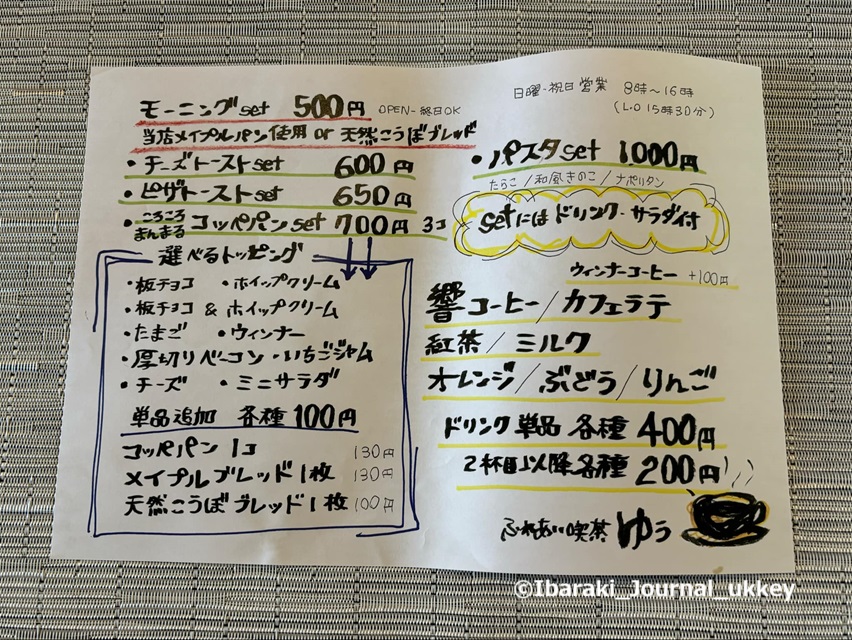 モーニングset 500円 OPEN-終日OK
当店メイプルパン使用 or 天然こうぼブレッド
・チーズトーストset 600円
・ピザトーストset 650円
・ころころまんまるコッペパンset 700円 3コ
選べるトッピング
・板チョコ ・ホイップクリーム
・板チョコ & ホイップクリーム
・たまご ・ウィンナー
・厚切りベーコン ・いちごジャム
・チーズ ・ミニサラダ
単品追加 各種 100円
コッペパン 1コ 130円
メイプルブレッド1枚 130円
天然こうぼブレッド1枚 100円
日曜-祝日営業 8時〜16時
(L.O 15時30分)
・パスタset 1000円
たらこ/和風きのこ/ナポリタン
setにはドリンク・サラダ付
ウィンナーコーヒー +100円
響コーヒー/カフェラテ
紅茶/ミルク
オレンジ/ぶどう/りんご
ドリンク単品 各種 400円
2杯目以降各種 200円
ふれあい喫茶 ゆう
©Ibaraki_Journal_ukkey